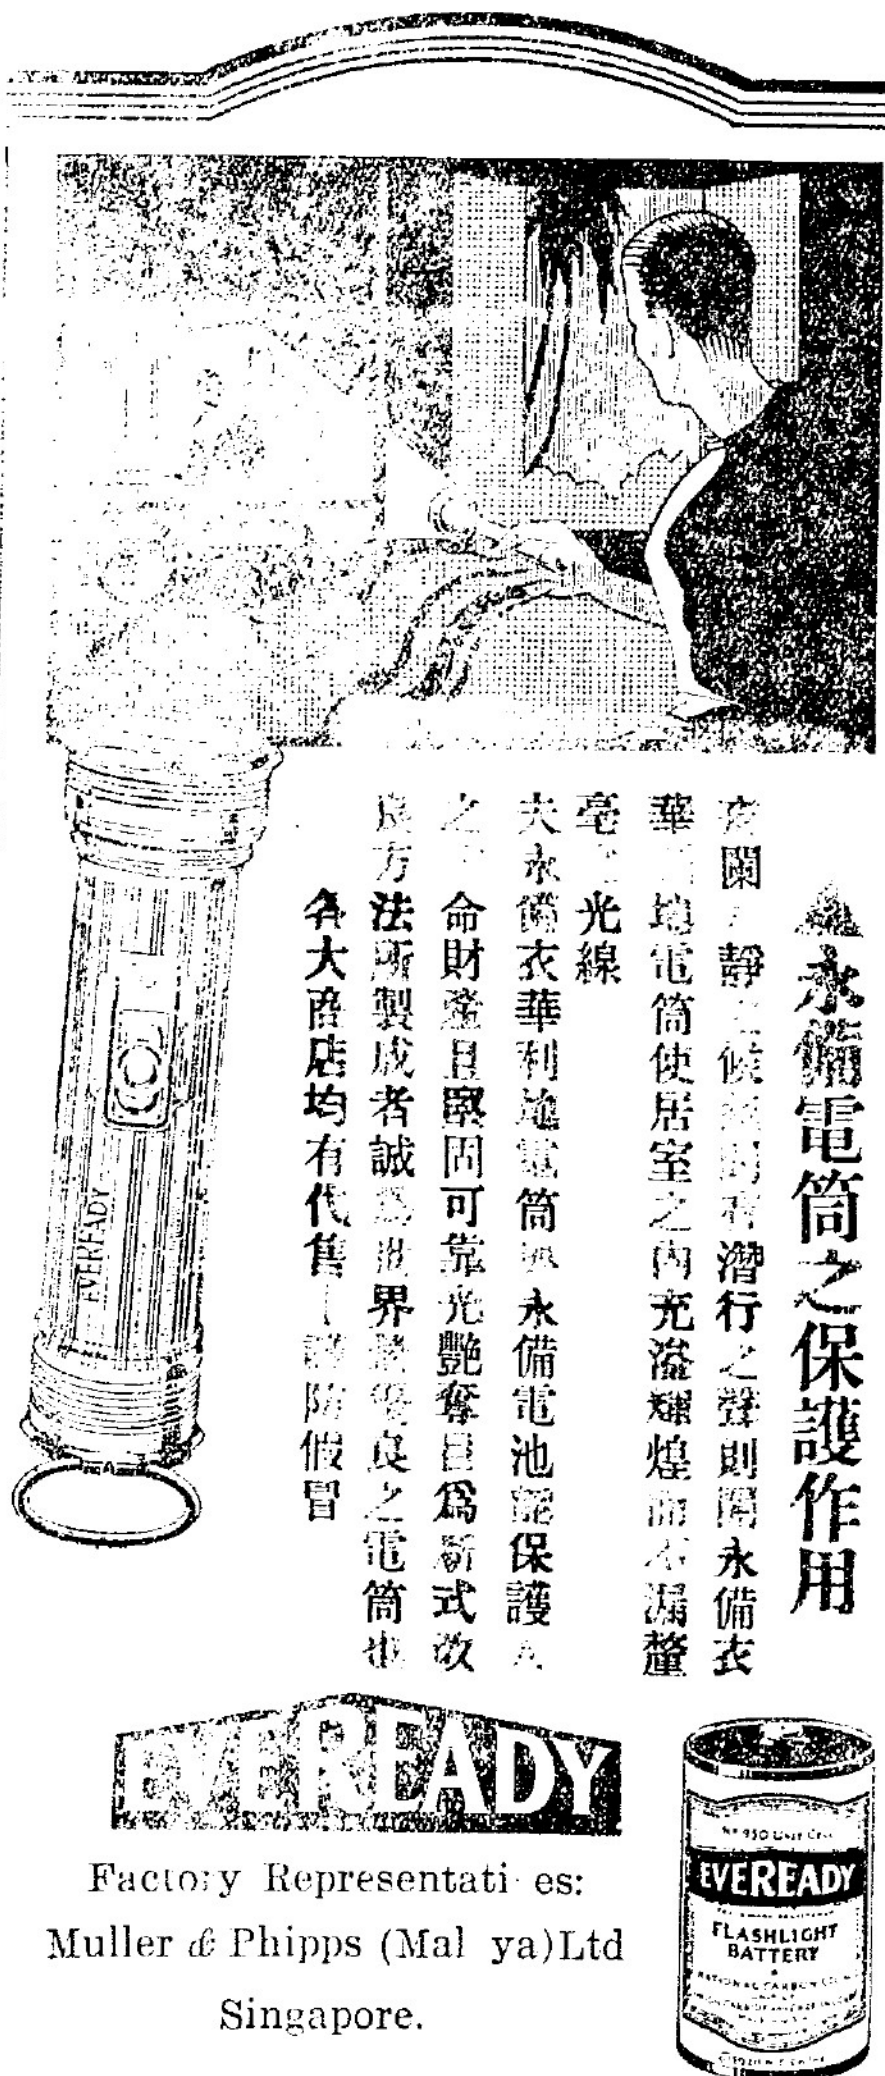 永備電筒之保護作用
夜闌人靜之候若聞有潛行之聲則開永備衣
華利地電筒使居室之內充溢輝煌而不漏釐
毫之光線
夫永備衣華利地電筒與永備電池能保護人
之 命財產且堅固可靠光艷奪目爲新式改
良方法所製成者誠爲世界最優良之電筒也
各大商店均有代售 謹防假冒
EVEREADY
EVEREADY
Factory Representati es:
Muller & Phipps (Mal ya)Ltd
Singapore.
Nº 950 Unit Cell
EVEREADY
FLASHLIGHT
BATTERY
NATIONAL CARBON CO.